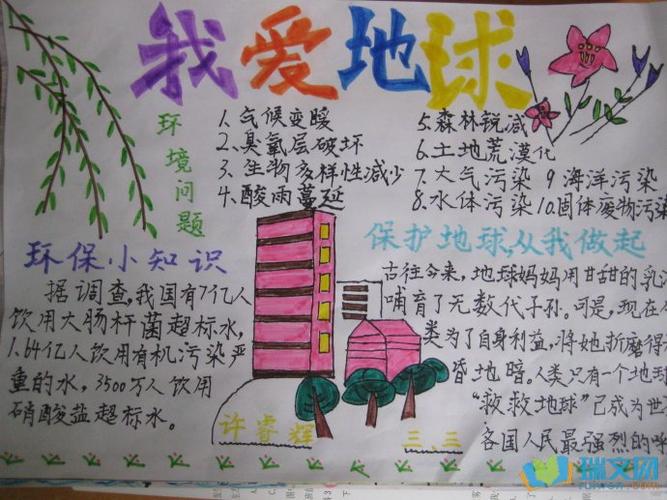 我爱地球
环境问题
1.气候变暖
2.臭氧层破坏
3.生物多样性减少
4.酸雨蔓延
5.森林锐减
6.土地荒漠化
7.大气污染 9海洋污染
8.水体污染 10.固体废物污染
环保小知识
据调查,我国有7亿人
饮用大肠杆菌超标水,
1.64亿人饮用有机污染严
重的水,3500万人饮用
硝酸盐超标水。
保护地球,从我做起
古往今来,地球妈妈用甘甜的乳
哺育了无数代子孙。可是,现在
类为了自身利益,将她折磨得
昏地暗。人类只有一个地球
“救救地球”已成为世
各国人民最强烈的呼
许睿辉
三、三
瑞文网
ruiwen.com